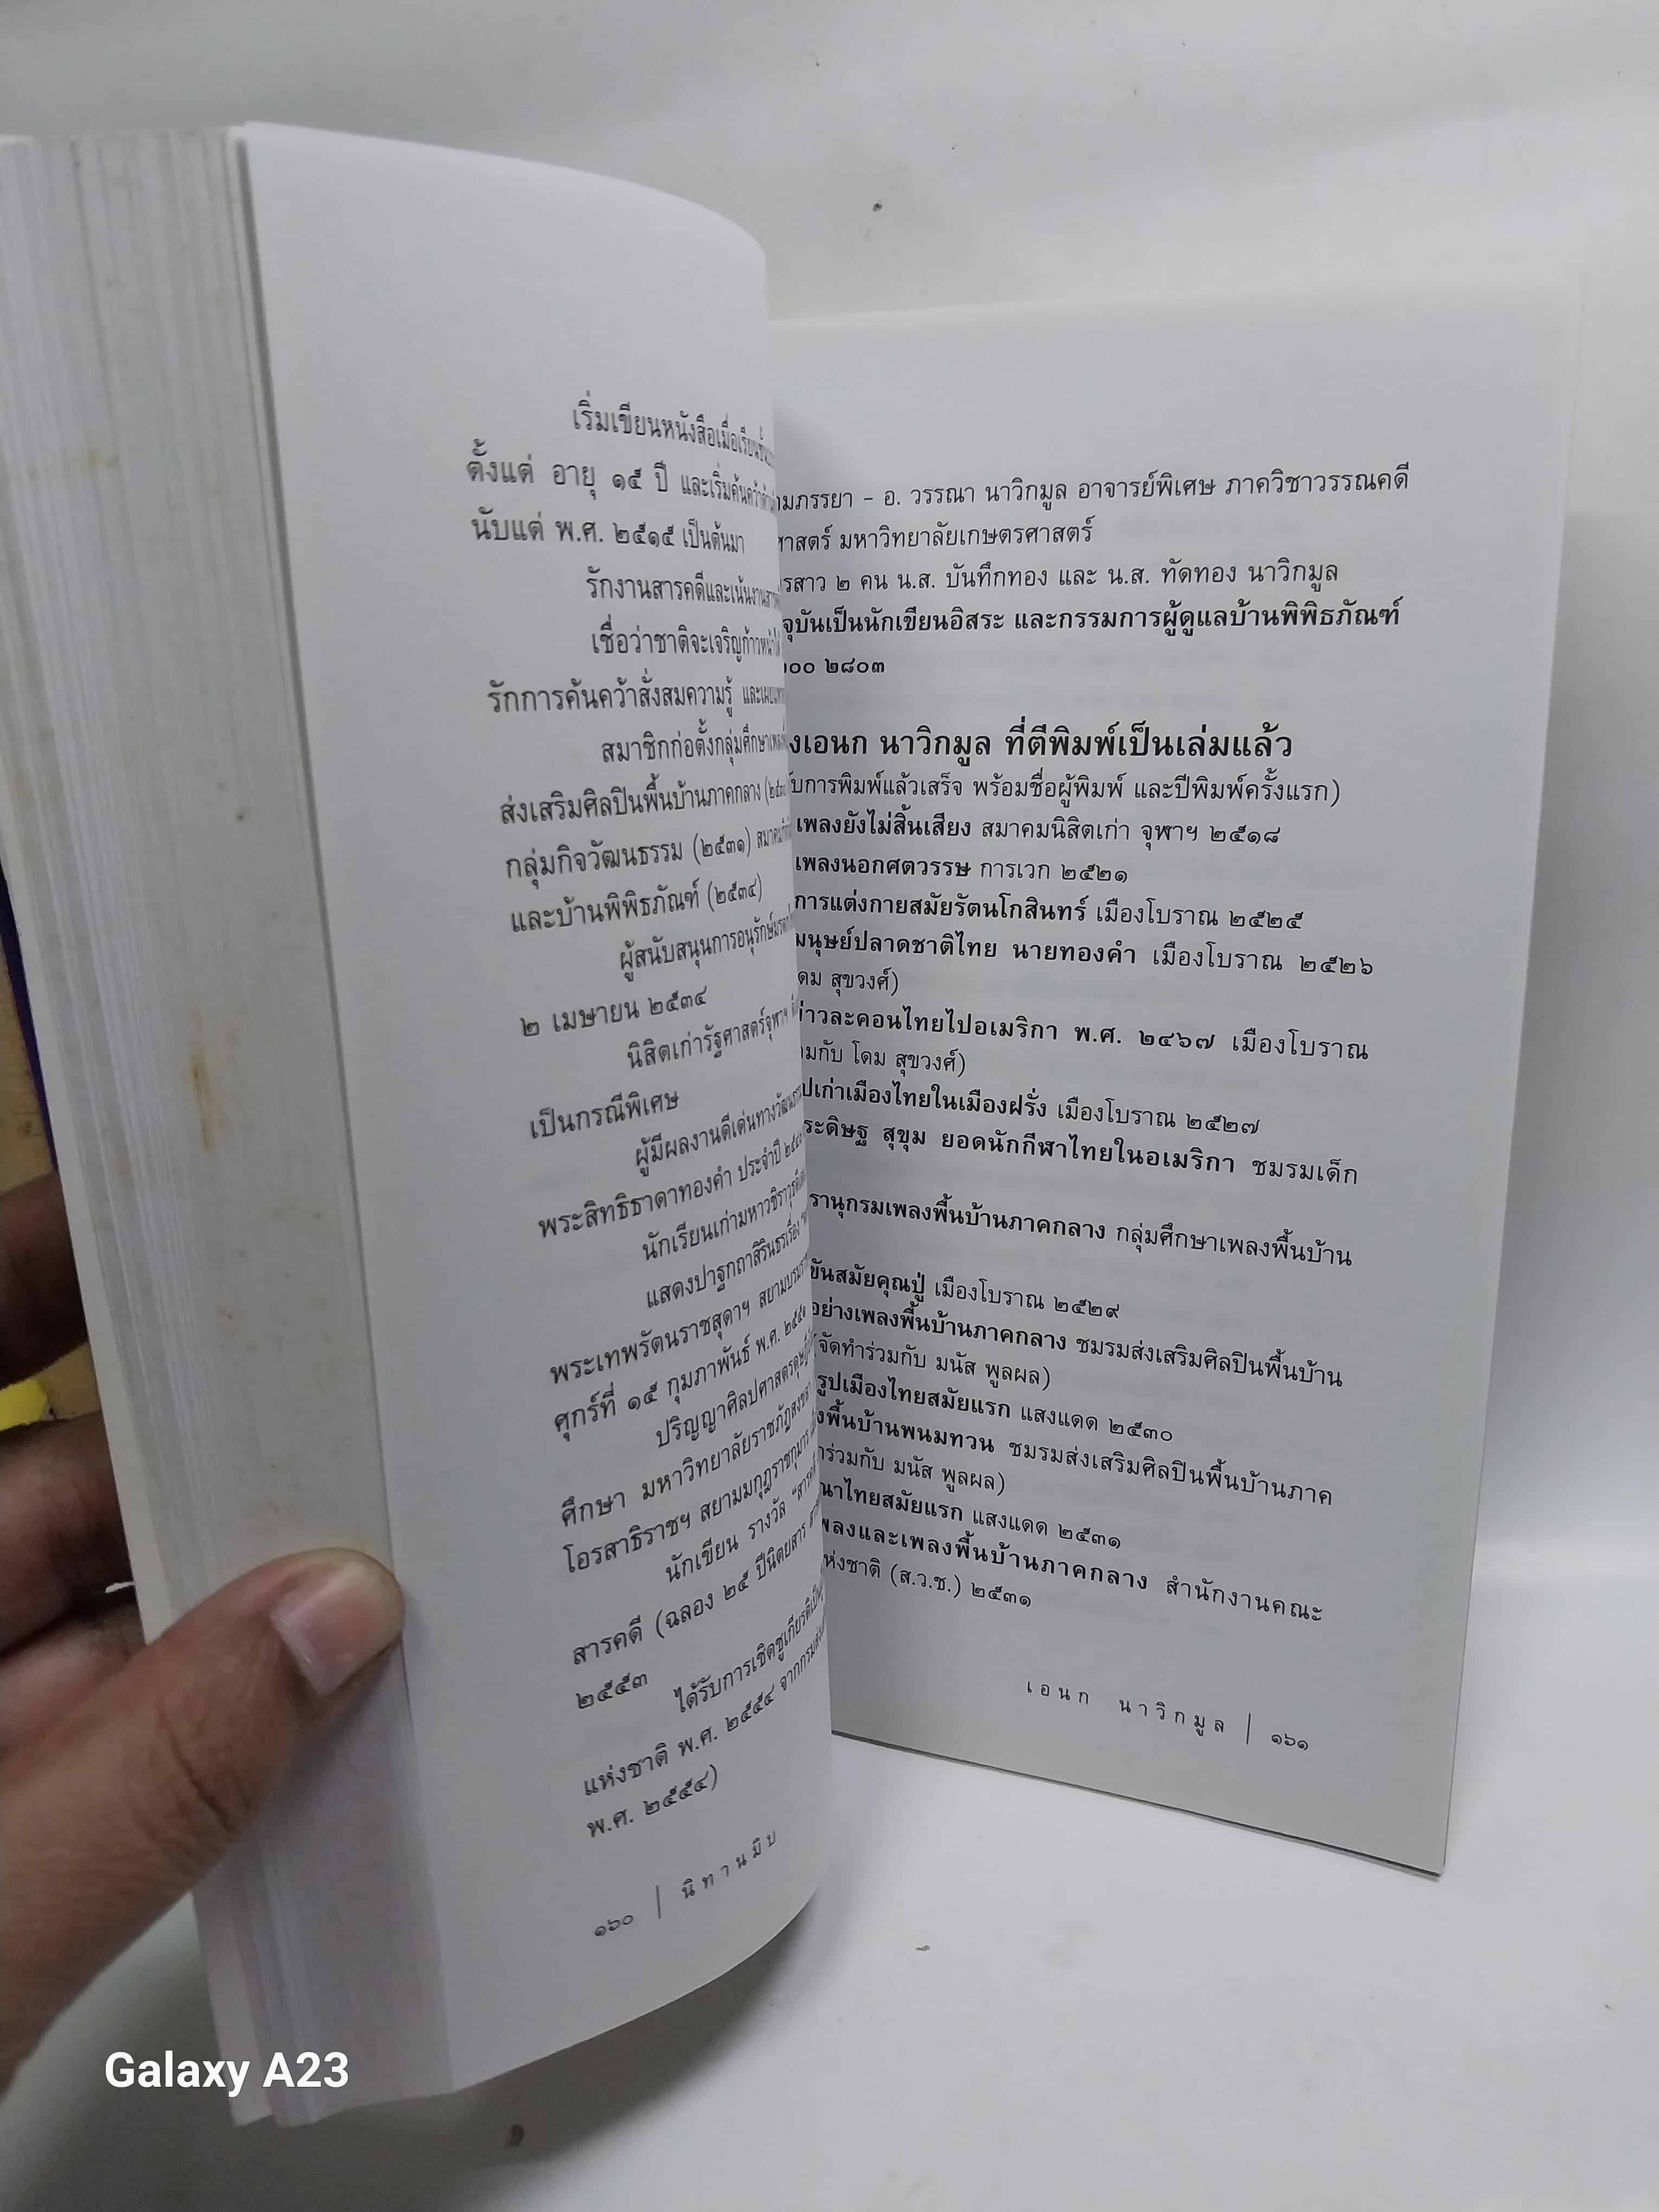 เริ่มเขียนหนังสือเมื่อเรียนชั้น
ตั้งแต่ อายุ ๑๕ ปี และเริ่มค้นคว้า
นับแต่ พ.ศ. ๒๕๑๕ เป็นต้นมา
รักงานสารคดีและเน้นงาน
เชื่อว่าชาติจะเจริญก้าวหน้าได้
รักการค้นคว้าสั่งสมความรู้ และ
สมาชิกก่อตั้งกลุ่มศึกษา
ส่งเสริมศิลปินพื้นบ้านภาคกลาง
กลุ่มกิจวัฒนธรรม (๒๕๓๑)
และบ้านพิพิธภัณฑ์ (๒๕๓๔)
ผู้สนับสนุนการอนุรักษ์
๒ เมษายน ๒๕๓๔
นิสิตเก่ารัฐศาสตร์จุฬาฯ
เป็นกรณีพิเศษ
ผู้มีผลงานดีเด่นทาง
พระสิทธิธาดาทองคำ ประจำปี
นักเรียนเก่ามหาวชิราวุธ
แสดงปาฐกถาสิรินธรเรื่อง
พระเทพรัตนราชสุดาฯ
ศุกร์ที่ ๑๕ กุมภาพันธ์ พ.ศ. ๒๕๕๑
ปริญญาศิลปศาสตรดุษฎี
ศึกษา มหาวิทยาลัยราชภัฏสงขลา
โอรสาธิราชฯ สยามมกุฎราชกุมาร
นักเขียน รางวัล "สารคดี
สารคดี (ฉลอง ๒๕ ปีนิตยสาร
๒๕๕๓
ได้รับการเชิดชูเกียรติเป็น
แห่งชาติ พ.ศ. ๒๕๕๔ จากกรม
พ.ศ. ๒๕๕๔)
๑๖๐ | นิทานมิบ
ภรรยา - อ. วรรณา นาวิกมูล อาจารย์พิเศษ ภาควิชาวรรณคดี
ศาสตร์ มหาวิทยาลัยเกษตรศาสตร์
รสาว ๒ คน น.ส. บันทึกทอง และ น.ส. ทัดทอง นาวิกมูล
จุบันเป็นนักเขียนอิสระ และกรรมการผู้ดูแลบ้านพิพิธภัณฑ์
๐๐ ๒๘๐๓
งเอนก นาวิกมูล ที่ตีพิมพ์เป็นเล่มแล้ว
การพิมพ์แล้วเสร็จ พร้อมชื่อผู้พิมพ์ และปีพิมพ์ครั้งแรก)
เพลงยังไม่สิ้นเสียง สมาคมนิสิตเก่า จุฬาฯ ๒๕๑๘
เพลงนอกศตวรรษ การเวก ๒๕๒๑
การแต่งกายสมัยรัตนโกสินทร์ เมืองโบราณ ๒๕๒๕
มนุษย์ปลาดชาติไทย นายทองคำ เมืองโบราณ ๒๕๒๖
ดม สุขวงศ์)
าวละคอนไทยไปอเมริกา พ.ศ. ๒๔๖๗ เมืองโบราณ
มกับ โดม สุขวงศ์)
ปเก่าเมืองไทยในเมืองฝรั่ง เมืองโบราณ ๒๕๒๗
ระดิษฐ สุขุม ยอดนักกีฬาไทยในอเมริกา ชมรมเด็ก
รานุกรมเพลงพื้นบ้านภาคกลาง กลุ่มศึกษาเพลงพื้นบ้าน
ขันสมัยคุณปู่ เมืองโบราณ ๒๕๒๙
อย่างเพลงพื้นบ้านภาคกลาง ชมรมส่งเสริมศิลปินพื้นบ้าน
จัดทำร่วมกับ มนัส พูลผล)
รูปเมืองไทยสมัยแรก แสงแดด ๒๕๓๐
งพื้นบ้านพนมทวน ชมรมส่งเสริมศิลปินพื้นบ้านภาค
าร่วมกับ มนัส พูลผล)
ณาไทยสมัยแรก แสงแดด ๒๕๓๑
พลงและเพลงพื้นบ้านภาคกลาง สำนักงานคณะ
ห่งชาติ (ส.ว.ช.) ๒๕๓๑
เอนก นาวิกมูล | ๑๖๑
Galaxy A23